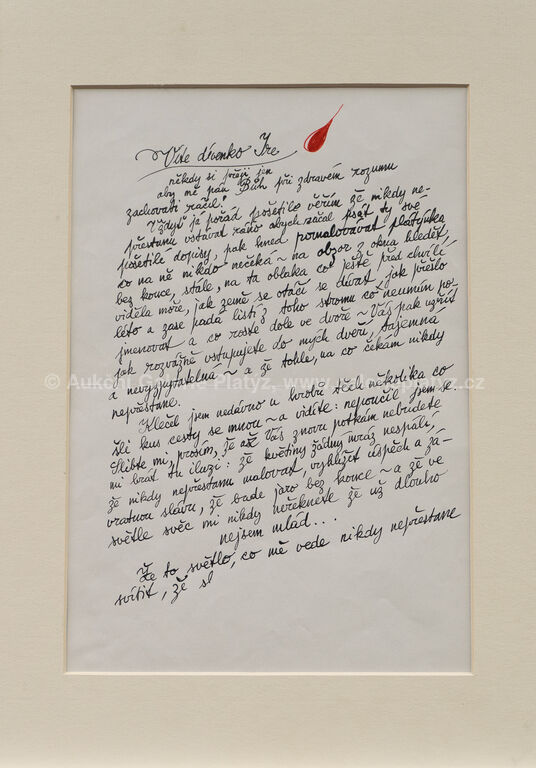 Víte děvenko Ire
někdy si přeji jen
aby mě pán Bůh při zdravém rozumu
zachovati ráčil!
Vždyť já pořád pošetile věřím že nikdy ne-
přestanu vstávat ráno abych začal psát ty své
pošetilé dopisy, pak hned pomalovávat plátýnka
co na ně nikdo nečeká ~ na obzor z okna hledět,
bez konce, stále, na ta oblaka co ještě před chvílí
viděla moře, jak země se otáčí se dívat, jak přešlo
léto a zase padá listí z toho stromu co neumím po-
jmenovat a co roste dole ve dvoře ~ Vás pak uzřít
jak rozvážně vstupujete do mých dveří, tajemná
a nevyzpytatelná ~ a že tohle, na co čekám nikdy
nepřestane.
Klečel jsem nedávno u hrobu těch několika co
šli kus cesty se mnou ~ a vidíte: nepoučil jsem se.
Slibte mi, prosím, že až Vás znovu potkám nebudete
mi brát tu iluzi: že květiny žádný mráz nespálí,
že nikdy nepřestanu malovat, vyhlížet úspěch a zá-
vratnou slávu, že bude jaro bez konce ~ a že ve
světle svěc mi nikdy neřeknete že už dlouho
nejsem mlád...
Že to světlo, co mě vede nikdy nepřestane
svítit, že sl
© Aukční Galerie Platýz, www.